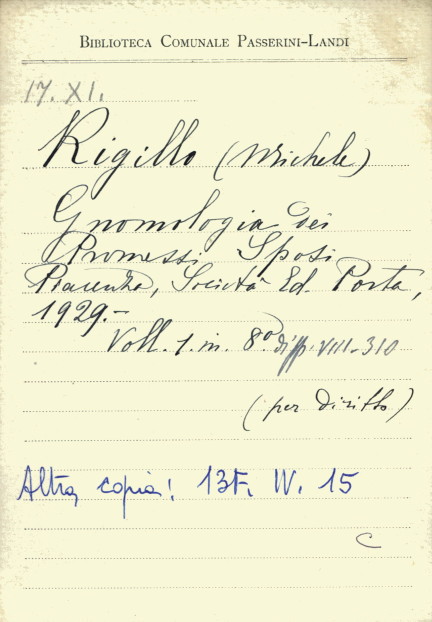 BIBLIOTECA COMUNALE PASSERINI-LANDI
17. XI.
Rigillo (Michele)
Gnomologia dei
Promessi Sposi
Piacenza, Società Ed. Porta,
1929.-
Voll. 1. in. 8º. di pp. VIII-310
(per diritto)
Altra copia: 13F. IV. 15
C